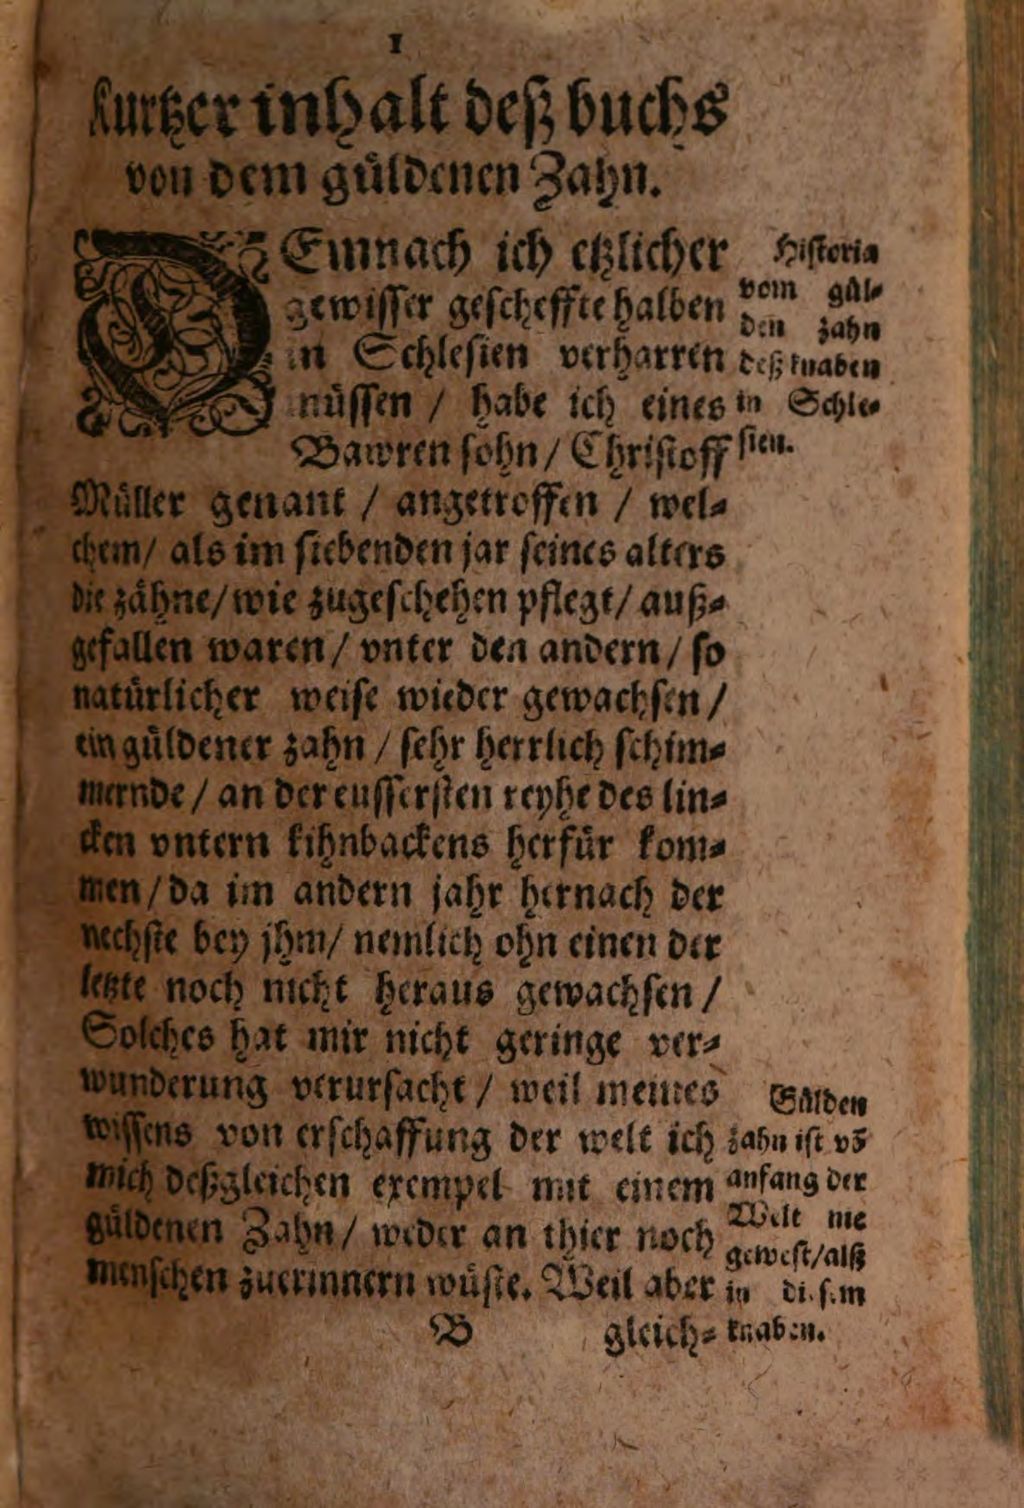 1
Kurtzer inhalt deß buchs
von dem güldenen Zahn.
DEmnach ich etzlicher
gewisser gescheffte halben
in Schlesien verharren
müssen / habe ich eines
Bawren sohn / Christoff
Müller genant / angetroffen / wel-
chem / als im siebenden jar seines alters
die zähne / wie zugeschehen pflegt / auß-
gefallen waren / vnter den andern / so
natürlicher weise wieder gewachsen /
ein güldener zahn / sehr herrlich schim-
mernde / an der eussersten reyhe des lin-
cken vntern kihnbackens herfür kom-
men / da im andern jahr hernach der
nechste bey jhm / nemlich ohn einen der
letzte noch nicht heraus gewachsen /
Solches hat mir nicht geringe ver-
wunderung verursacht / weil meines
wissens von erschaffung der welt ich
mich deßgleichen exempel mit einem
güldenen Zahn / weder an thier noch
menschen zuerinnern wüste. Weil aber
B gleich-
Historia
vom gül-
den zahn
deß knaben
in Schle-
sien.
Gülden
zahn ist võ
anfang der
Welt nie
gewest / alß
in diesem
knaben.